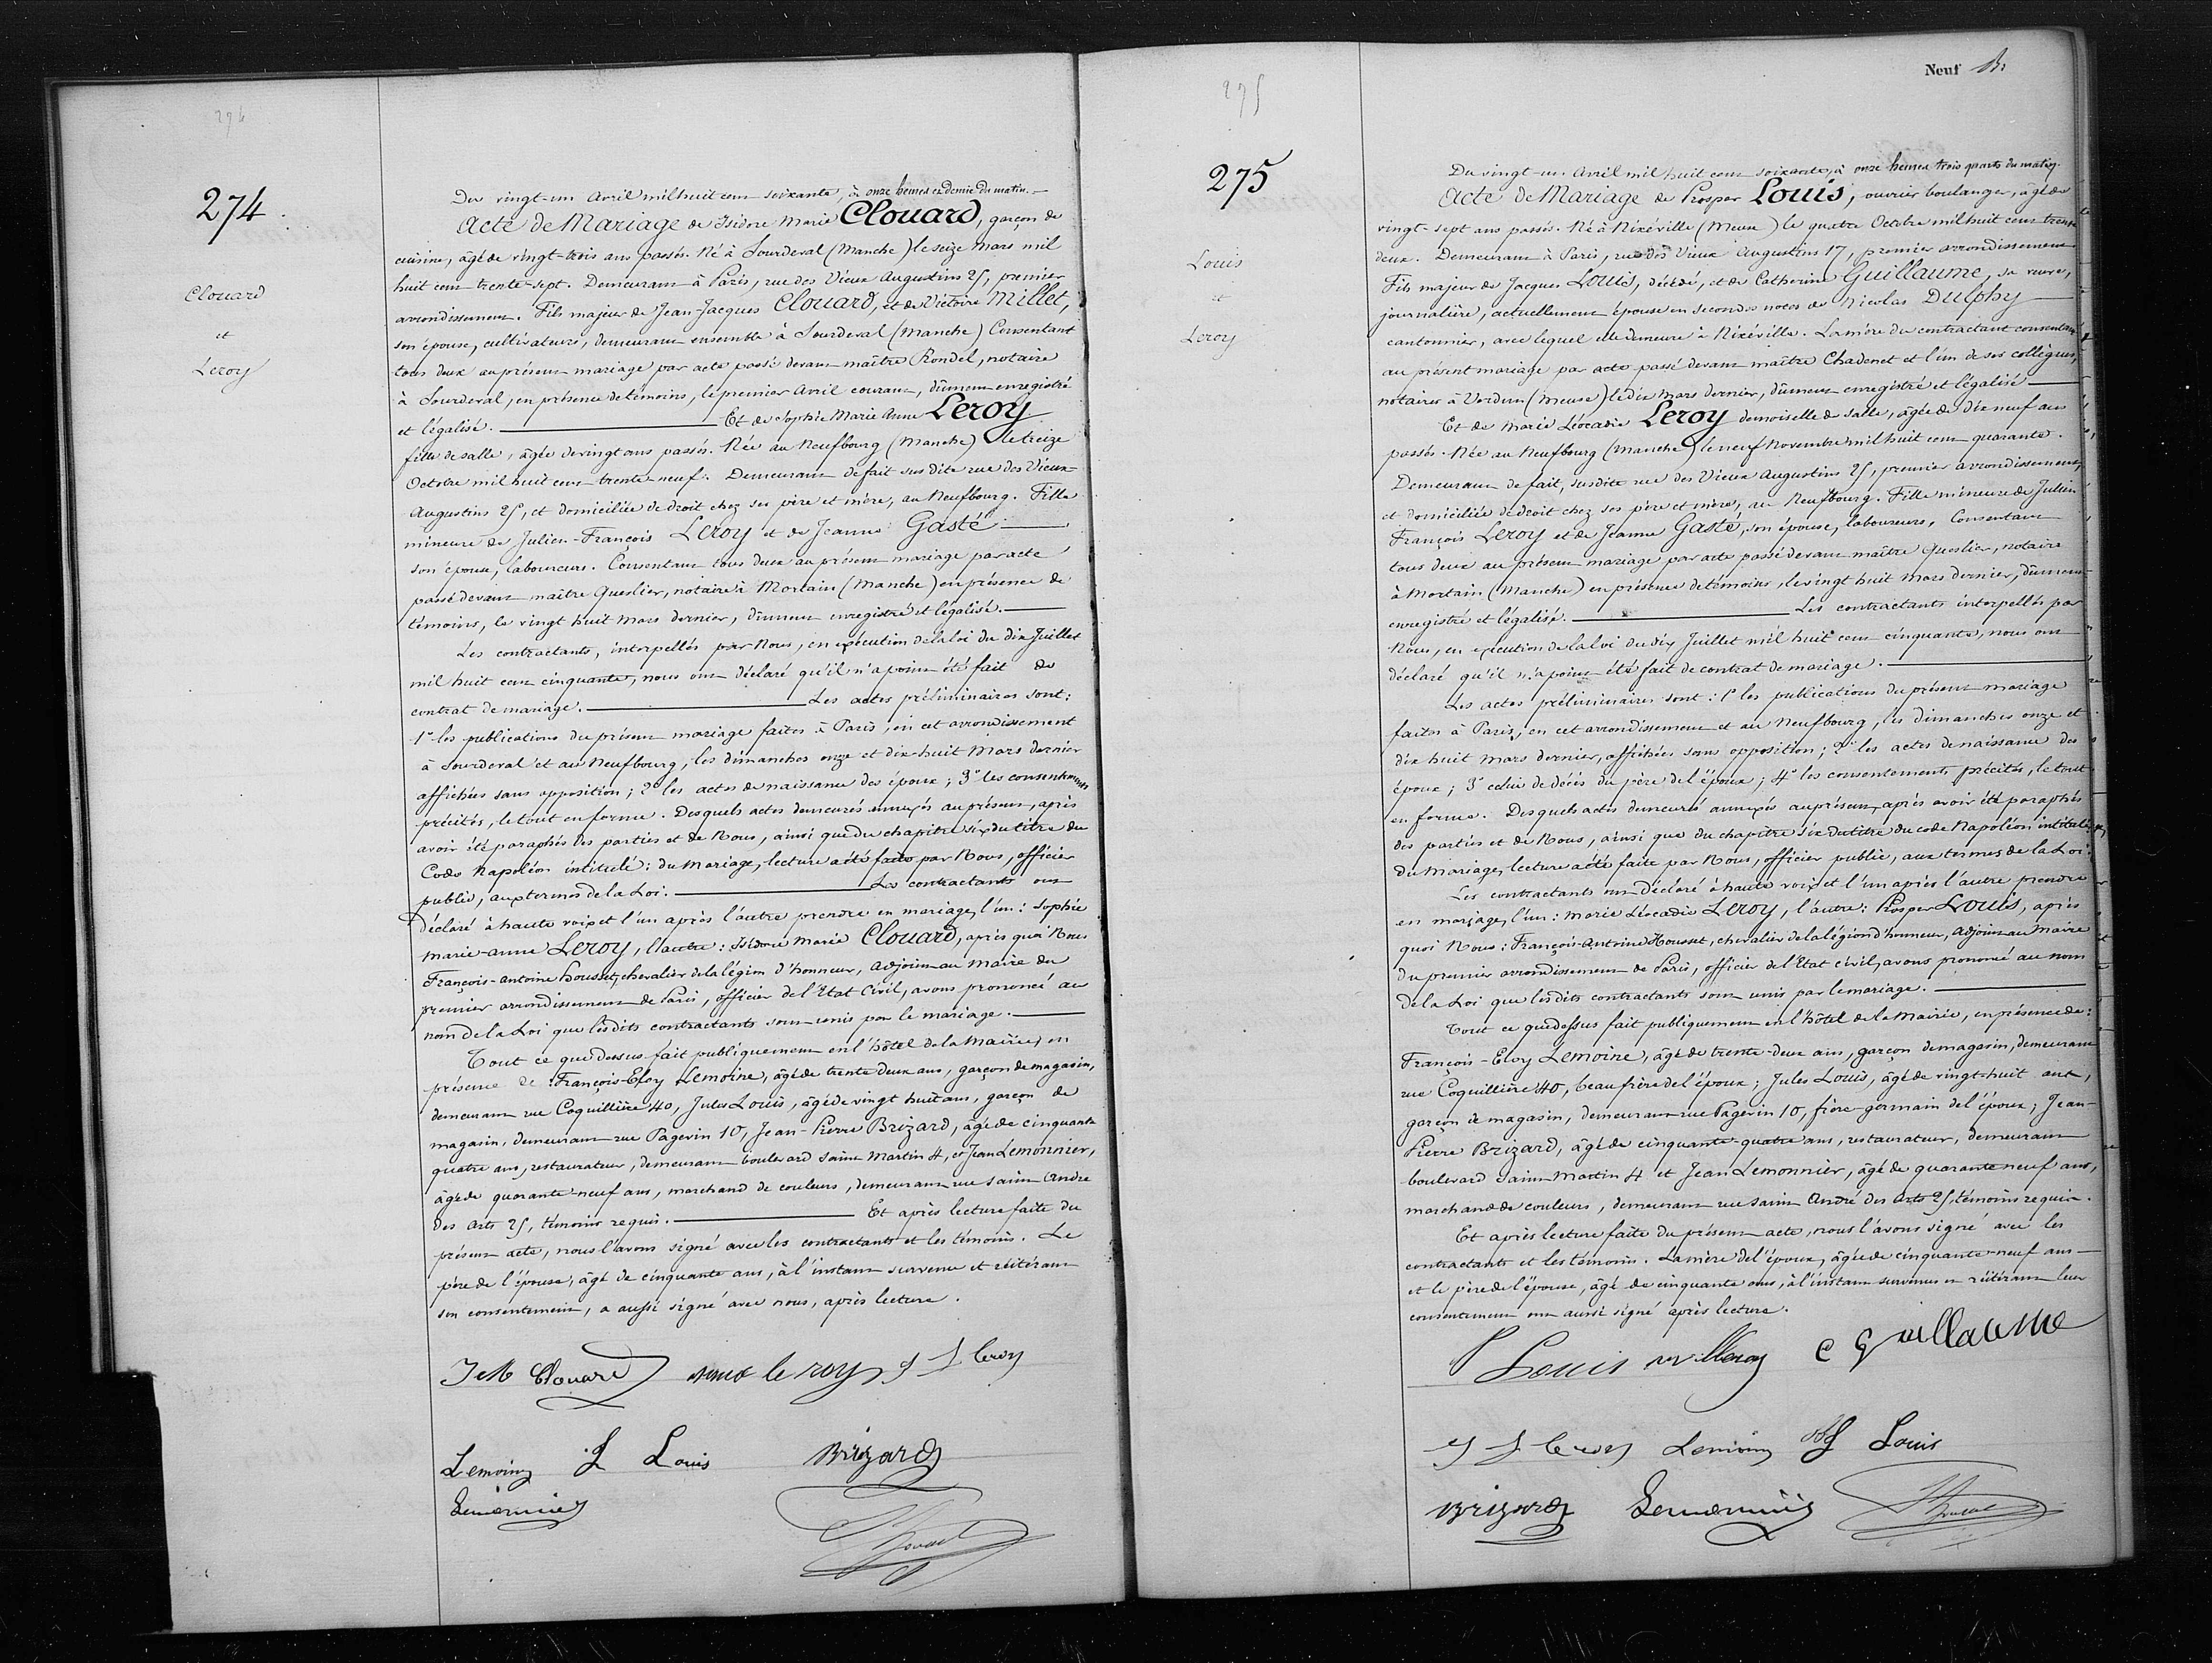 274
Clouard
et
Leroy
Du vingt-un Avril mil huit cent soixante, à onze heures et demie du matin.
Acte de Mariage de Isidore Marie Clouard, garçon de
cuisine, âgé de vingt-trois ans passés. Né à Sourdeval (Manche) le seize Mars mil
huit cent trente-sept. Demeurant à Paris, rue des Vieux Augustins 25, premier
arrondissement. Fils majeur de Jean-Jacques Clouard, et de Victoire Millet,
son épouse, cultivateurs, demeurant ensemble à Sourdeval (Manche) Consentant
tous deux au présent mariage par acte passé devant maître Rondel, notaire
à Sourdeval, en présence de témoins, le premier Avril courant, dûment enregistré
et légalisé. Et de Sophie Marie Anne Leroy
fille de salle, âgée de vingt ans passés. Née au Neufbourg (Manche) le treize
Octobre mil huit cent trente-neuf. Demeurant de fait susdite rue des Vieux
Augustins 25, et domiciliée de droit chez ses père et mère, au Neufbourg. Fille
mineure de Julien-François Leroy et de Jeanne Gasté
son épouse, laboureurs. Consentant tous deux au présent mariage par acte
passé devant maître Queslier, notaire à Mortain (Manche) en présence de
témoins, le vingt huit Mars dernier, dûment enregistré et légalisé.
Les contractants, interpellés par Nous, en exécution de la loi du dix Juillet
mil huit cent cinquante, nous ont déclaré qu'il n'a point été fait de
contrat de mariage. Les actes préliminaires sont:
1° les publications du présent mariage faites à Paris, en cet arrondissement
à Sourdeval et au Neufbourg, les dimanches onze et dix-huit Mars dernier
affichées sans opposition; 2° les actes de naissance des époux; 3° les consentements
précités, le tout en forme. Desquels actes demeurés annexés au présent, après
avoir été paraphés des parties et de Nous, ainsi que du chapitre six du titre du
Code Napoléon intitulé: du Mariage, lecture a été faite par Nous, officier
public, aux termes de la Loi. Les contractants ont
déclaré à haute voix et l'un après l'autre prendre en mariage, l'un: Sophie
Marie-Anne Leroy, l'autre: Isidore Marie Clouard, après quoi Nous
François-Antoine Housset, chevalier de la légion d'honneur, Adjoint au Maire du
premier arrondissement de Paris, officier de l'Etat Civil, avons prononcé au
nom de la Loi que lesdits contractants sont unis par le mariage.
Tout ce que dessus fait publiquement en l'hôtel de la Mairie, en
présence de François-Eloy Lemoine, âgé de trente deux ans, garçon de magasin,
demeurant rue Coquillière 40, Jules Louis, âgé de vingt huit ans, garçon de
magasin, demeurant rue Pagevin 10, Jean-Pierre Brizard, âgé de cinquante
quatre ans, restaurateur, demeurant boulevard Saint Martin 4, et Jean Lemonnier,
âgé de quarante-neuf ans, marchand de couleurs, demeurant rue Saint André
des Arts 25, témoins requis. Et après lecture faite du
présent acte, nous l'avons signé avec les contractants et les témoins. Le
père de l'épouse, âgé de cinquante ans, à l'instant survenu et réitérant
son consentement, a aussi signé avec nous, après lecture.
J M Clouard le roy J f leroy
Lemoine J Louis Brizard
Lemonnier
275
Neuf
275
Louis
et
Leroy
Du vingt-un Avril mil huit cent soixante, à onze heures trois quarts du matin.
Acte de Mariage de Prosper Louis, ouvrier boulanger, âgé de
vingt-sept ans passés. Né à Nixéville (Meuse) le quatre Octobre mil huit cent trente
deux. Demeurant à Paris, rue des Vieux Augustins 17, premier arrondissement
Fils majeur de Jacques Louis, décédé, et de Catherine Guillaume, sa veuve,
journalière, actuellement épouse en secondes noces de Nicolas Dulphy
cantonnier, avec lequel elle demeure à Nixéville. La mère du contractant consentant
au présent mariage par acte passé devant maître Chadenet et l'un de ses collègues,
notaires à Verdun (Meuse) le dix Mars dernier, dûment enregistré et légalisé
Et de Marie Léocadie Leroy demoiselle de salle, âgée de dix neuf ans
passés. Née au Neufbourg (Manche) le neuf Novembre mil huit cent quarante.
Demeurant de fait, susdite rue des Vieux Augustins 25, premier arrondissement,
et domiciliée de droit chez ses père et mère, au Neufbourg. Fille mineure de Julien
François Leroy et de Jeanne Gasté, son épouse, laboureurs, Consentant
tous deux au présent mariage par acte passé devant maître Queslier, notaire
à Mortain (Manche) en présence de témoins, le vingt huit Mars dernier, dûment
enregistré et légalisé. Les contractants interpellés par
Nous, en exécution de la loi du dix Juillet mil huit cent cinquante, nous ont
déclaré qu'il n'a point été fait de contrat de mariage.
Les actes préliminaires sont: 1° les publications du présent mariage
faites à Paris, en cet arrondissement et au Neufbourg, les dimanches onze et
dix huit Mars dernier, affichées sans opposition; 2° les actes de naissance des
époux; 3° celui de décès du père de l'époux; 4° les consentements précités, le tout
en forme. Desquels actes demeurés annexés au présent, après avoir été paraphés
des parties et de Nous, ainsi que du chapitre six du titre du code Napoléon intitulé
du Mariage, lecture a été faite par Nous, officier public, aux termes de la Loi.
Les contractants ont déclaré à haute voix et l'un après l'autre prendre
en mariage, l'un: Marie Léocadie Leroy, l'autre: Prosper Louis, après
quoi Nous: François-Antoine Housset, chevalier de la légion d'honneur, Adjoint au Maire
du premier arrondissement de Paris, officier de l'Etat civil, avons prononcé au nom
de la Loi que lesdits contractants sont unis par le mariage.
Tout ce que dessus fait publiquement en l'hôtel de la Mairie, en présence de:
François-Eloy Lemoine, âgé de trente-deux ans, garçon de magasin, demeurant
rue Coquillière 40, beau frère de l'époux; Jules Louis, âgé de vingt-huit ans,
garçon de magasin, demeurant rue Pagevin 10, frère germain de l'époux; Jean-
Pierre Brizard, âgé de cinquante-quatre ans, restaurateur, demeurant
boulevard Saint Martin 4 et Jean Lemonnier, âgé de quarante neuf ans,
marchand de couleurs, demeurant rue Saint André des Arts 25, témoins requis.
Et après lecture faite du présent acte, nous l'avons signé avec les
contractants et les témoins. La mère de l'époux, âgée de cinquante-neuf ans
et le père de l'épouse, âgé de cinquante ans, à l'instant survenus et réitérant leur
consentement ont aussi signé après lecture.
P Louis C Guillaume
J f leroy Lemoine J Louis
Brizard Lemonnier